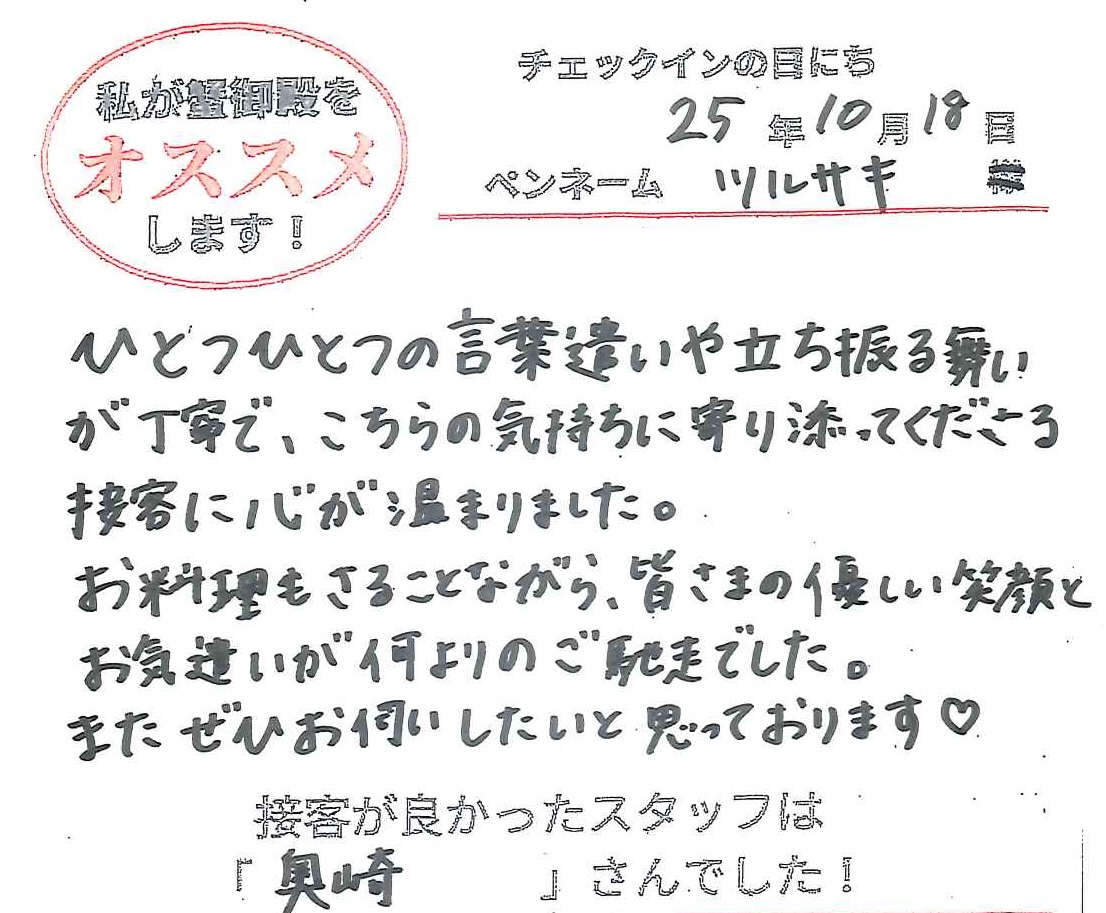 私が蟹御殿を
オススメ
します！
チェックインの日にち
25年10月18日
ペンネーム ツルサキ
ひとつひとつの言葉遣いや立ち振る舞い
が丁寧で、こちらの気持ちに寄り添ってくださる
接客に心が温まりました。
お料理もさることながら、皆さまの優しい笑顔と
お気遣いが何よりのご馳走でした。
またぜひお伺いしたいと思っております♡
接客が良かったスタッフは
「奥崎」さんでした！